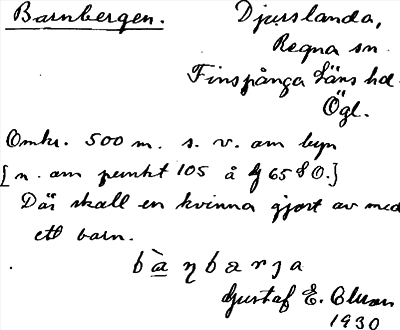 Barnbergen.
Djurslanda,
Regna sn.
Finspånga läns hd.
Ögl.
Omkr. 500 m. s. v. om byn
[n. om punkt 105 å G 65 S O.]
Där skall en kvinna gjort av med
ett barn.
bàṇbarja
Gustaf E.
1930